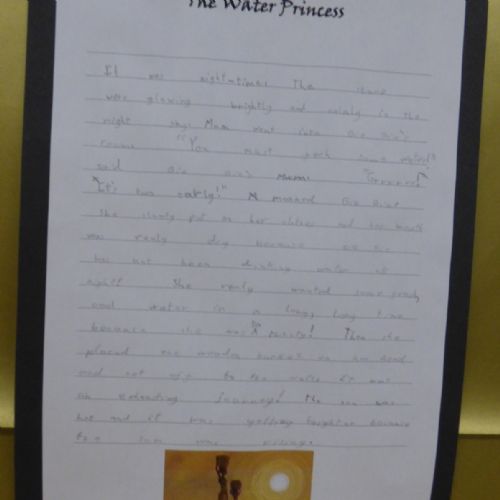 The Water Princess
It was nightime. The stars
were glowing brightly and calmly in the
night sky. Mum went into Gie Gie's
room. "You must pack some water!"
said Gie Gie's Mum. "Grrrrr
It's two early!" moaned Gie Gie
She slowly put on her clothes and her mouth
was really dry because
has not been drinking water at
night! She really wanted some
cool water in a long, long time
because she was a princess! Then she
placed the wooden bucket on her head
and set off to the well. It was
an exhausting journey! The sun was
hot and it was getting brighter because
the sun was rising.